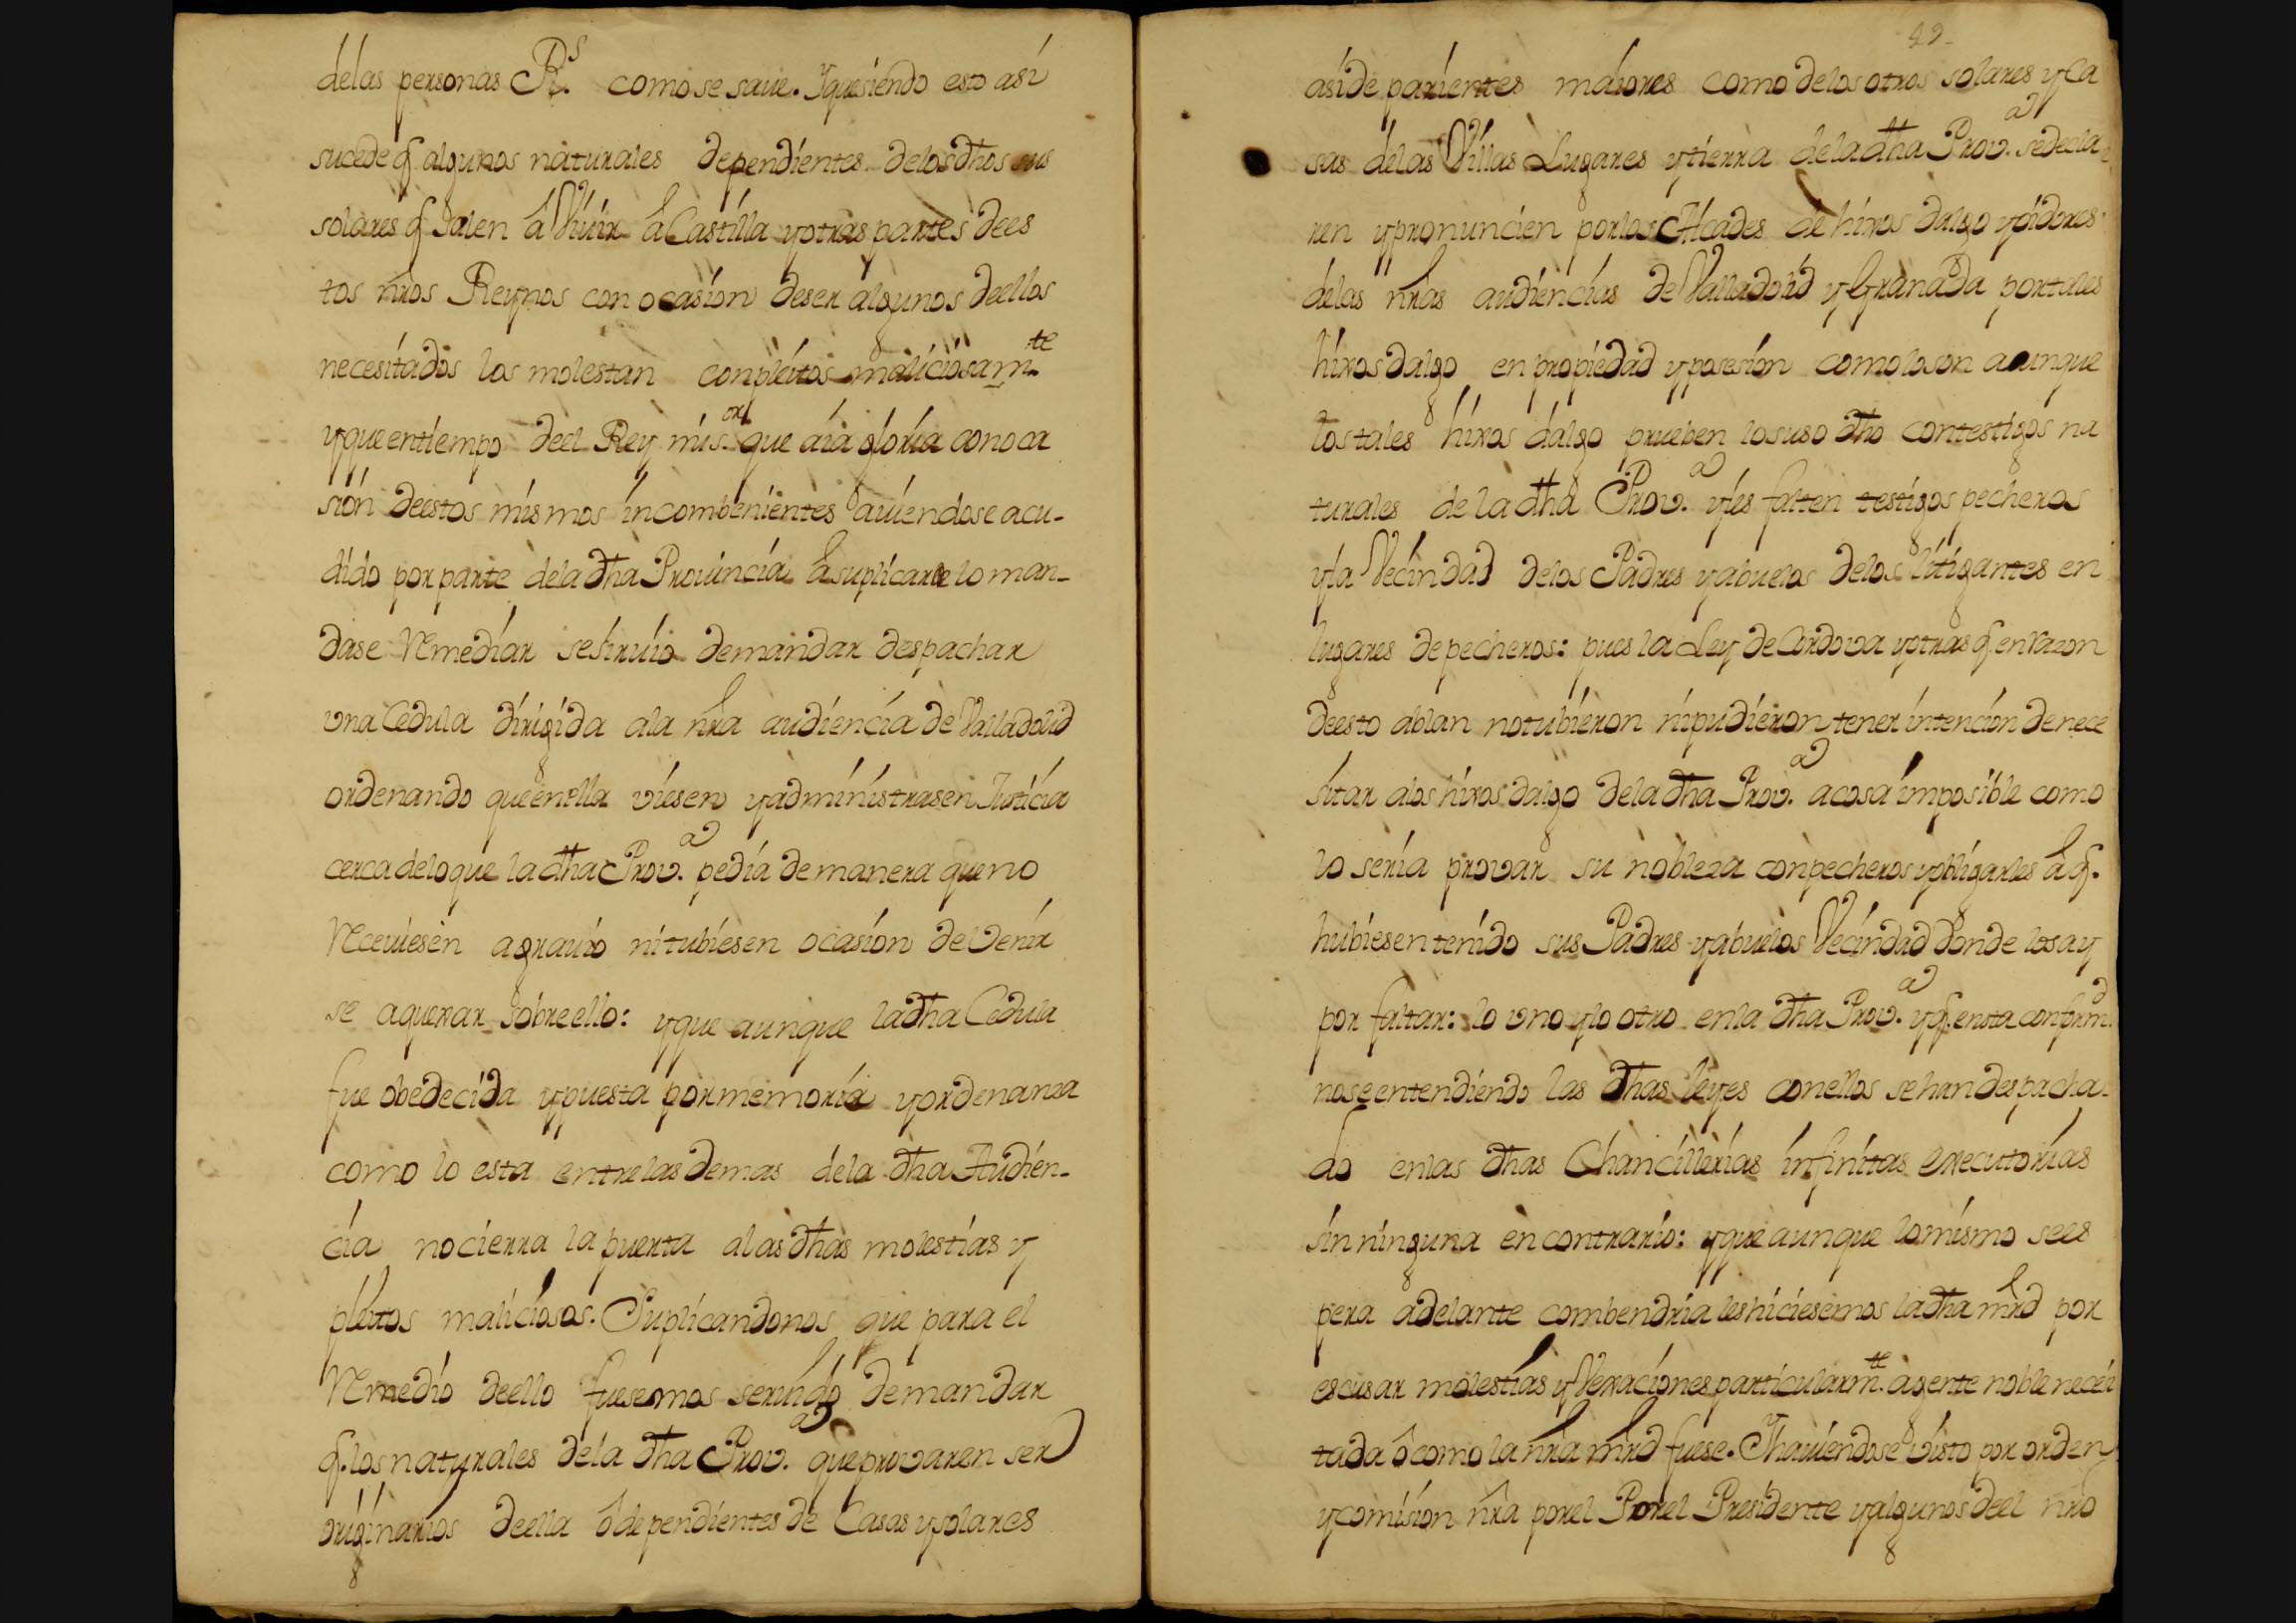 delas personas Rs. como se saue. Yque siendo esto asi
sucede q. algunos naturales dependientes delos dhos sus
solares q salen â Viuir â Castilla y otras partes de es
tos nros Reynos con ocasion deser algunos deellos
necesitados los molestan con pleitos maliciosamte
y que entiempo deel Rey mi sor. que aia gloria con oca
sion deestos mismos incombenientes auiendose acu-
dido por parte dela dha Prouincia â suplicarle lo man-
dase Remediar se siruio demandar despachar
vna Cedula dirigida ala nra audiencia de Valladolid
ordenando que en ella viesen y administrasen Justicia
cerca delo que la dha Prov.a pedia de manera que no
Receuiesen agrauio ni tubiesen ocasion de Venir
se aquexar sobre ello: y que aunque la dha Cedula
fue obedecida y puesta por memoria y ordenanza
como lo esta entre las demas dela dha Audien-
cia no cierra la puerta alas dhas molestias y
pleitos maliciosos. Suplicandonos que para el
Remedio deello fuesemos seruido demandar
q. los naturales dela dha Prov.a que provaren ser
originarios deella ô dependientes de Casas y solares
49
asi de parientes maiores como delos otros solares y ca
sas delas Villas Lugares y tierra dela dha Prov.a se decla
ren y pronuncien por los Alcades de hixos dalgo y oidores
delas nras audiencias de Valladolid y Granada por tales
hixos dalgo en propiedad y posesion como lo son aaunque
los tales hixos dalgo prueben lo suso dho con testigos na
turales de la dha Prov.a y les falten testigos pecheros
y la Vecindad delos Padres y abuelos delos litigantes en
lugares de pecheros: pues la Ley de Cordova y otras q. en razon
deesto ablan no tubieron ni pudieron tener intencion de nece
sitar alos hixos dalgo dela dha Prov.a a cosa imposible como
lo seria provar su nobleza con pecheros y obligarles â q.
hubiesen tenido sus Padres y abuelos Vecindad donde los ay
por faltar: lo vno y lo otro en la dha Prov.a y q. en esta conformd.
nose entendiendo las dhas leyes con ellos se han despacha-
do en las dhas Chancillerias infinitas executorias
sin ninguna en contrario: y que aunque lo mismo se es
pera adelante combendria les hiciesemos la dha mrd por
escusar molestias y Vexaciones particularmte. a gente noble neceSi
tada ô como la nra mrd fuese. Y hauiendose visto por orden
y comision nra por el Por el Presidente y algunos deel nro